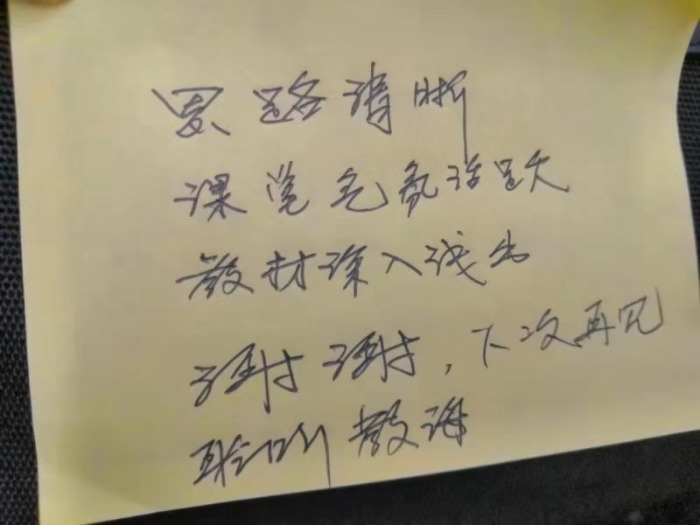 思路清晰
课堂气氛活跃
教材深入浅出
谢谢，下次再见
聆听教诲